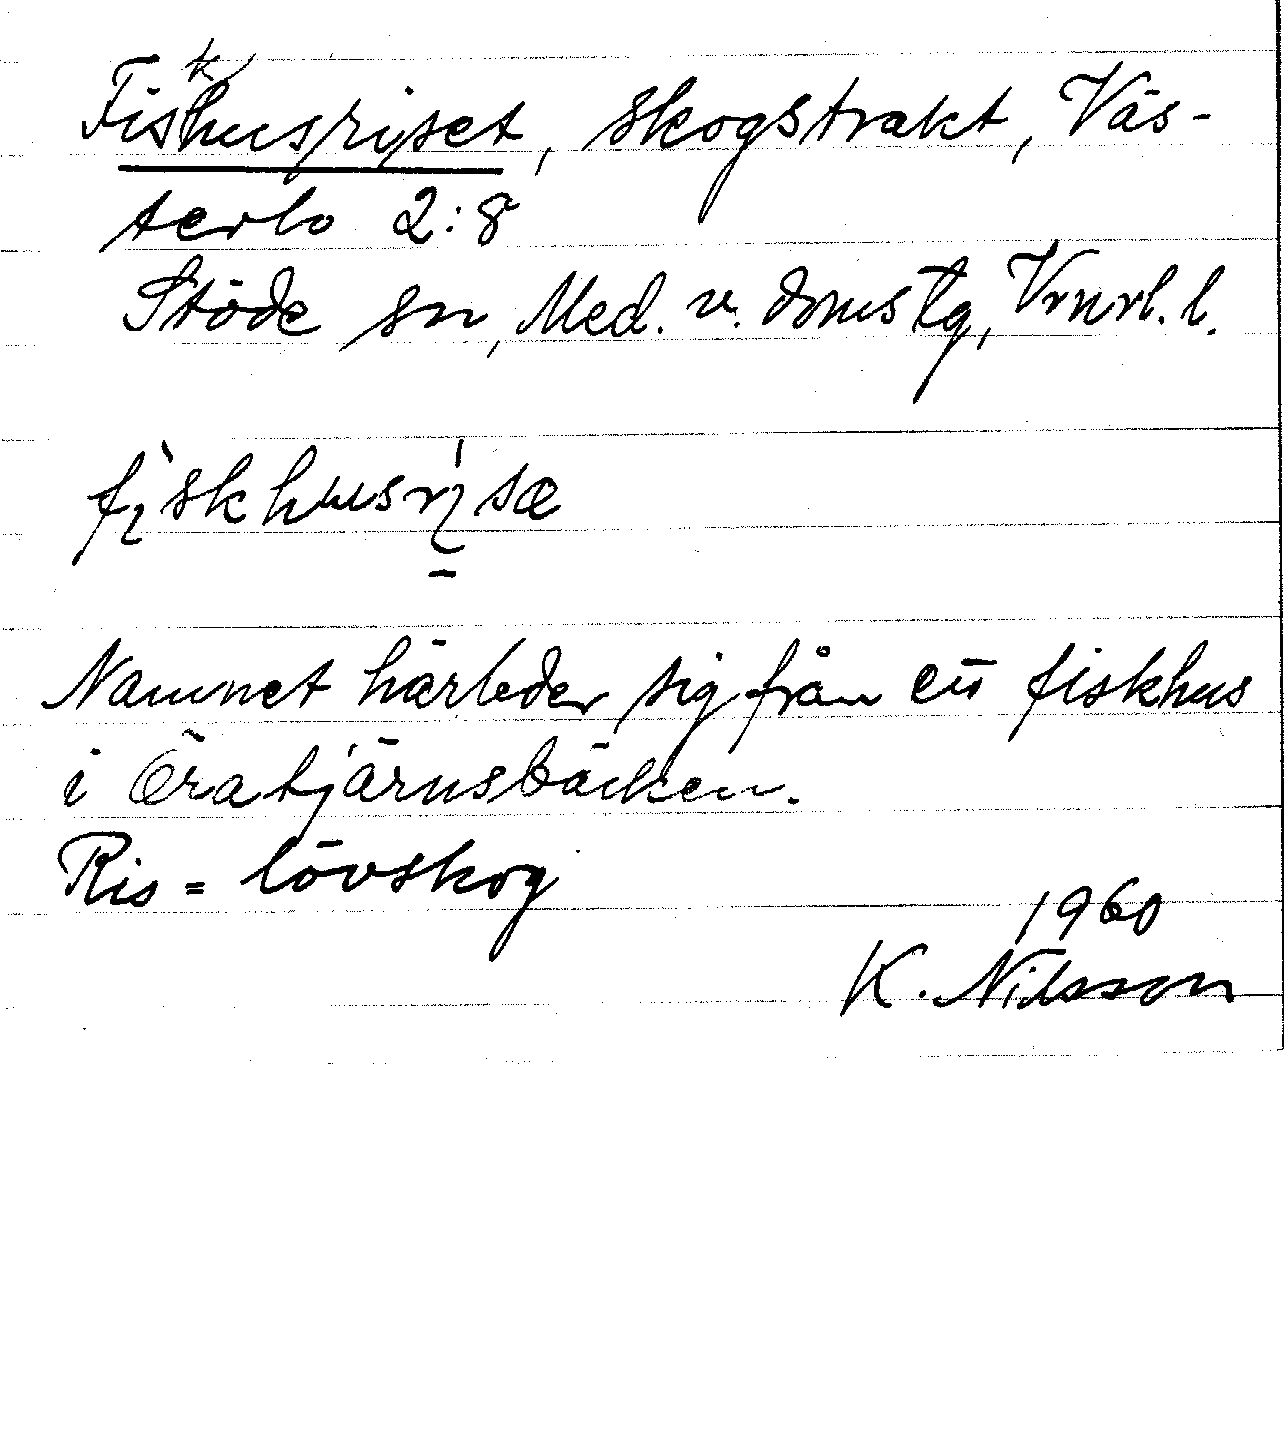 Fiskhusriset, skogstrakt, Väs-
terlo 2:8
Stöde sn, Med. v. domstg, Vrnrl. l.
fiskhusrisæ
Namnet härleder sig från ett fiskhus
i Öratjärnsbäcken.
Ris = lövskog
1960
K. Nilsson